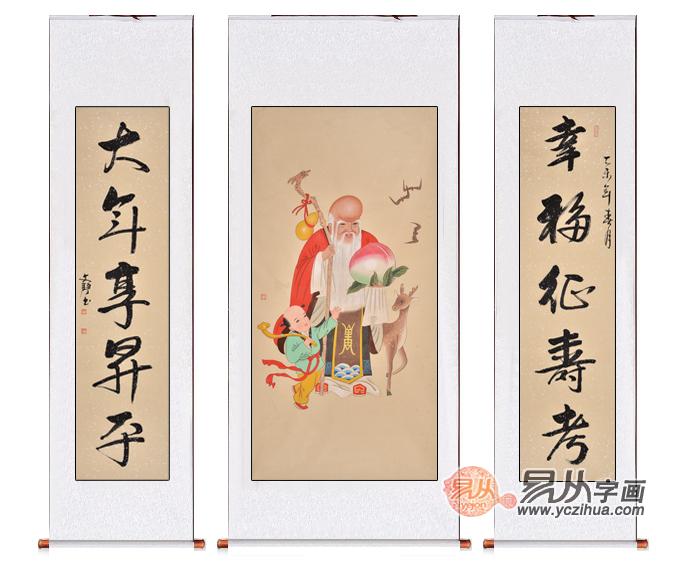 幸福征寿考
乙未年春月
大年享昇平
文静书
易从
yc
易从字画
www.yczihua.com